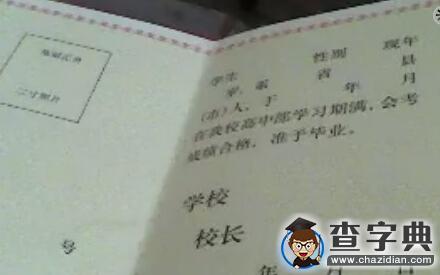 二寸照片
号
学生 性别 现年
岁，系 省 县
（市）人，于 年 月
在我校高中部学习期满，会考
成绩合格，准予毕业。
学校
校长
年 月 日
查字典
www.chazidian.com